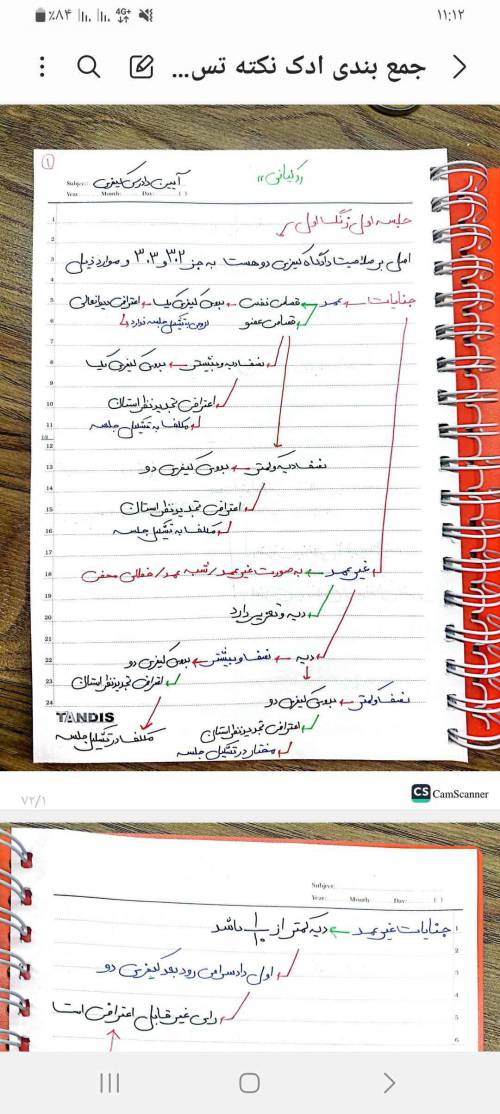 ٪۸۴ 4G+ ۱۱:۱۲
جمع بندی ادک نکته تس...
۱
Subject: آیین دادرسی کیفری
Year: Month: Day: ( )
جلسه اول زنگ اول
اصل بر صلاحیت دادگاه کیفری دو هست به جز ۳۰۲ و ۳۰۳ و موارد ذیل
جنایات عمد قصاص نفس بدوی کیفری یک اعتراض دیوانعالی
قصاص عضو لزومی به تشکیل جلسه ندارد
نصف دیه و بیشتر بدوی کیفری یک
اعتراض تجدیدنظر استان
مکلف به تشکیل جلسه
نصف دیه و کمتر بدوی کیفری دو
اعتراض تجدیدنظر استان
مکلف به تشکیل جلسه
غیر عمد به صورت غیر عمد / شبه عمد / خطای محض
دیه و تعزیر دارد
دیه نصف و بیشتر بدوی کیفری دو
اعتراض تجدیدنظر استان
مکلف در تشکیل جلسه
نصف و کمتر بدوی کیفری دو
اعتراض تجدیدنظر استان
مختار در تشکیل جلسه
TANDIS
۷۲/۱
CS CamScanner
Subject:
Year: Month: Day: ( )
جنایات غیر عمد دیه کمتر از ۱/۱۰ باشد
اول دادسرا می رود بعد کیفری دو
رای غیر قابل اعتراض است